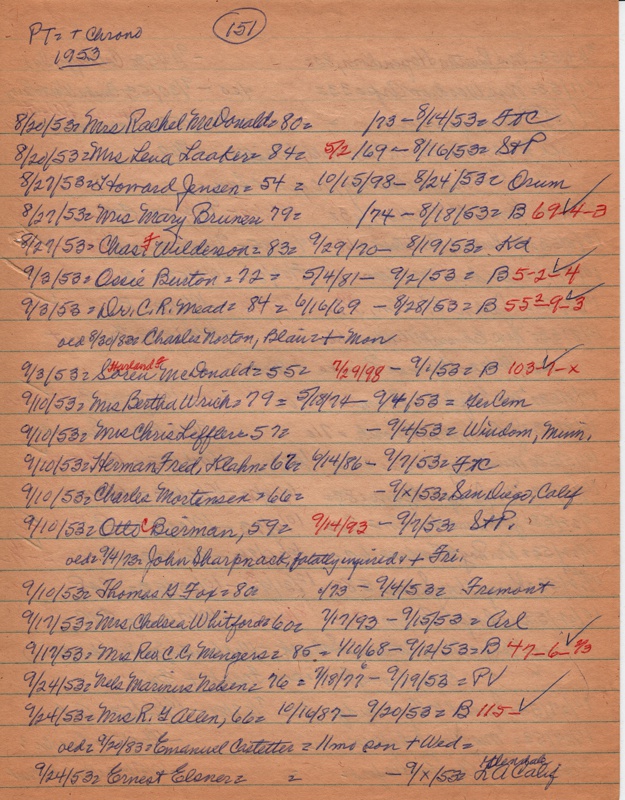 PT= + Chrono
151
1953
8/20/53= Mrs Rachel McDonald= 80= /73 - 8/14/53= FtC
8/20/53= Mrs Lena Laaker= 84= 5/2/69 - 8/16/53= StP
8/27/53= Howard Jensen= 54 = 10/15/98- 8/24/53= Orum
8/27/53= Mrs Mary Bruner= 79= /74 - 8/18/53= B 69-4-3
8/27/53= Chas F Wilderson= 83= 9/29/70- 8/19/53= Kd
9/3/53= Ossie Burton= 72= 5/4/81- 9/2/53= B 5-2-4
9/3/53= Dr. C. R. Mead= 84= 6/16/69 - 8/28/53= B 55²-9-3
oed 8/30/83= Charles Norton, Blair= + Mon
9/3/53= Soren Harland F McDonald= 55= 7/29/98 - 9/1/53= B 103-7-x
9/10/53= Mrs Bertha Wrich= 79= 5/18/74- 9/4/53= GerCem
9/10/53= Mrs Chris Leffler= 57= - 9/4/53= Windom, Minn.
9/10/53= Herman Fred, Klahn= 67= 6/14/86- 9/7/53= FtC
9/10/53= Charles Mortensen= 66= - 9/x/53= San Diego, Calif
9/10/53= Otto C Bierman, 59= 9/14/93 - 9/7/53= StP.
oed= 9/4/73= John Sharpnack, fatally injured + Fri.
9/10/53= Thomas G Fox= 80= /73 - 9/4/53= Fremont
9/17/53= Mrs. Chelsea Whitford= 60= 7/17/93 - 9/15/53= Arl
9/17/53= Mrs Rev C.C. Mengers= 85= 1/10/68- 9/12/53= B 47-6-2/3
9/24/53= Nels Marinus Nielsen= 76 = 7/18/77 - 9/19/53= PV
9/24/53= Mrs R. G Allen, 66= 10/16/87- 9/20/53= B 115-
oed= 9/20/83= Emanuel Castetter= 11mo son + Wed=
9/24/53= Ernest Elsner= = - 9/x/53= Glendale LA Calif